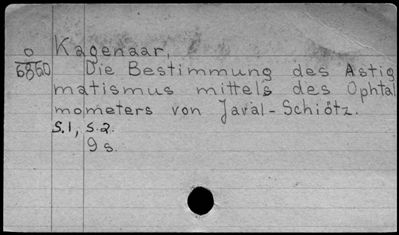 Kagenaar,
o
6860 Die Bestimmung des Astig
matismus mittels des Ophtal
mometers von Javal-Schiötz.
S.1, S.2.
9 s.